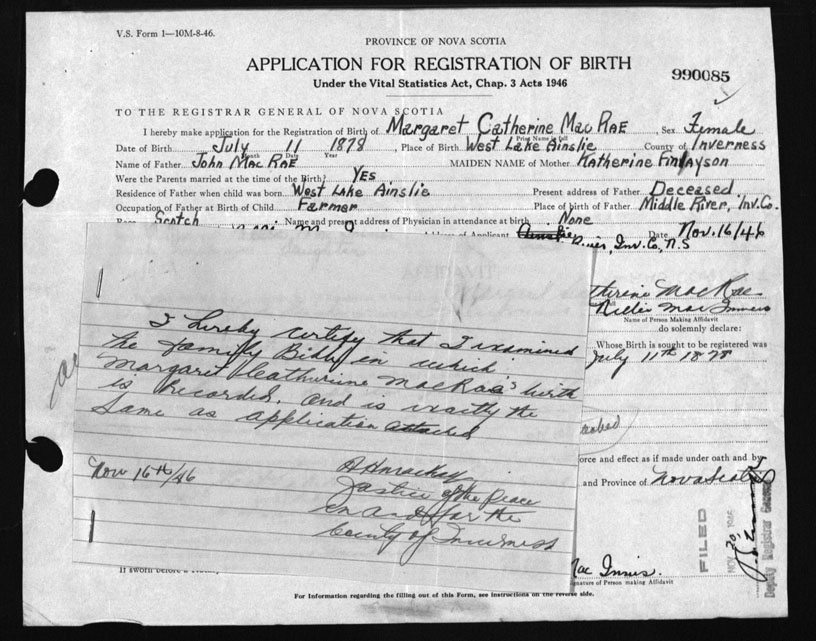 V.S. Form 1—10M-8-46.
PROVINCE OF NOVA SCOTIA
APPLICATION FOR REGISTRATION OF BIRTH
Under the Vital Statistics Act, Chap. 3 Acts 1946
990085
TO THE REGISTRAR GENERAL OF NOVA SCOTIA
I hereby make application for the Registration of Birth of Margaret Catherine MacRAE, Sex Female
Print Name in full
Date of Birth July 11 1878, Place of Birth West Lake Ainslie County of Inverness
Month Date Year
Name of Father John MacRAE MAIDEN NAME of Mother Katherine Finlayson
Were the Parents married at the time of the Birth? YES
Residence of Father when child was born West Lake Ainslie Present address of Father Deceased
Occupation of Father at Birth of Child Farmer Place of birth of Father Middle River, Inv. Co.
Race Scotch Name and present address of Physician in attendance at birth None
Address of Applicant Ainslie Date Nov. 16/46
River, Inv. Co, N.S
therine MacRae
Millie MacInnis
Name of Person Making Affidavit
do solemnly declare:
Whose Birth is sought to be registered was
July 11th 1878
I hereby certify that I examined
the family Bible in which
Margaret Catherine MacRae's birth
is recorded, and is exactly the
same as application attached
Nov 16th/46
Justice of the Peace
in and for the
County of Inverness
orce and effect as if made under oath and by
and Province of Nova Scotia
FILED
NOV 20 1946
Deputy Registrar General
Mac Innis.
Signature of Person making Affidavit
If sworn before a
For Information regarding the filling out of this Form, see instructions on the reverse side.